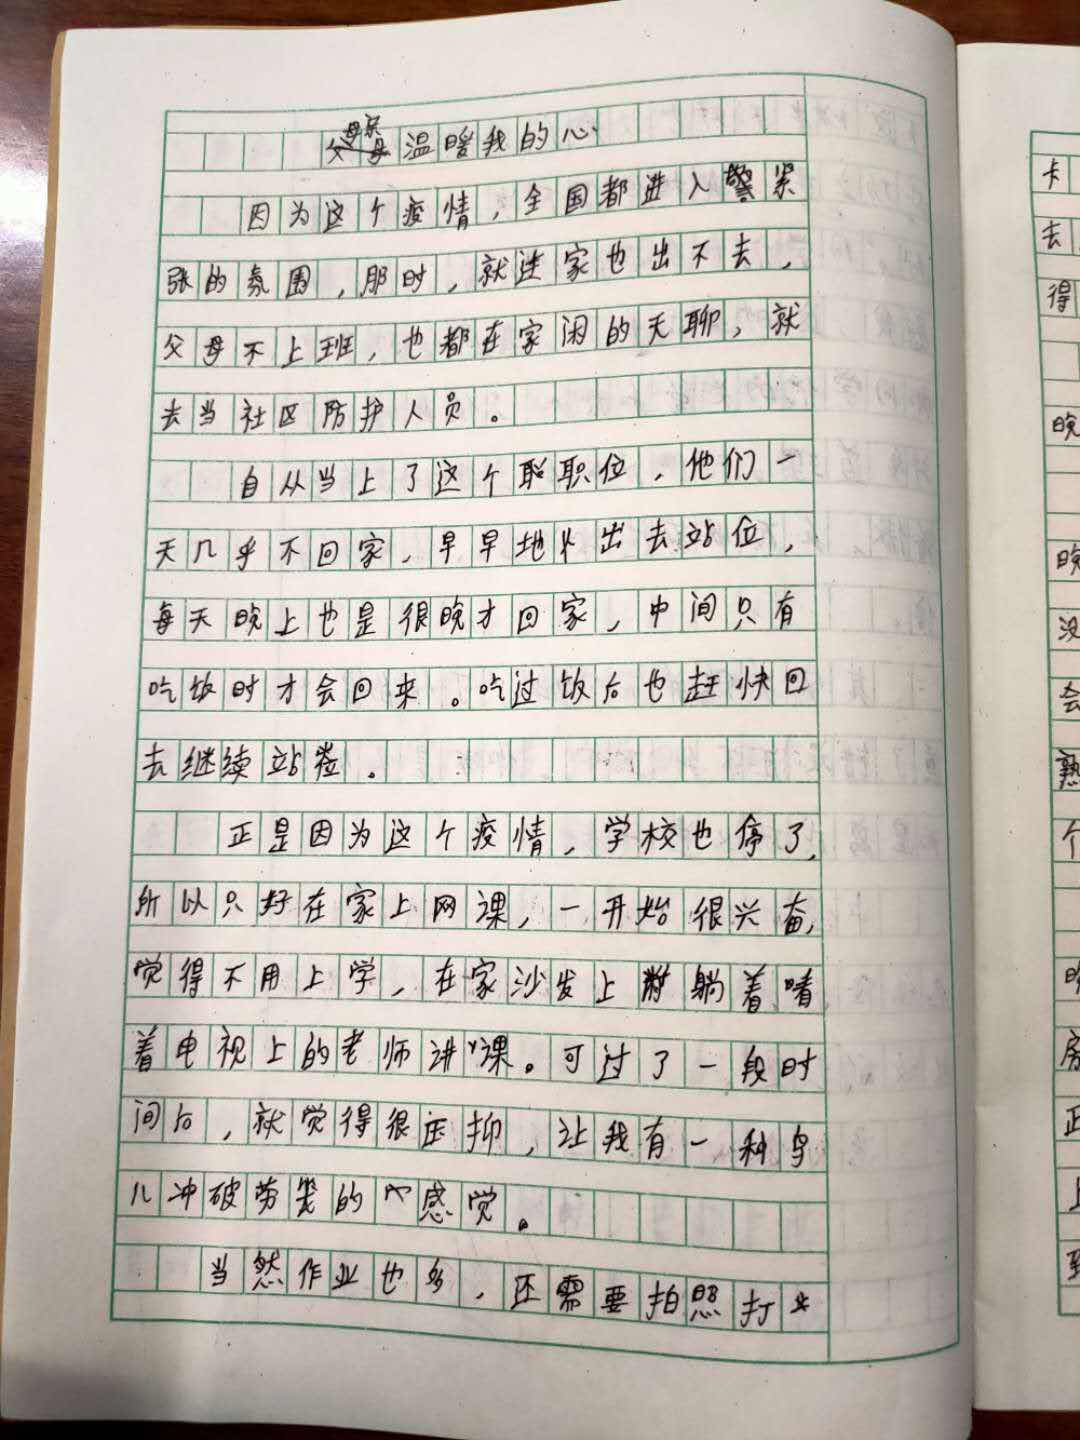 母亲温暖我的心
因为这个疫情，全国都进入紧
张的氛围，那时，就连家也出不去，
父母不上班，也都在家闲的天聊，就
去当社区防护人员。
自从当上了这个职位，他们一
天几乎不回家，早早地出去站位，
每天晚上也是很晚才回家，中间只有
吃饭时才会回来。吃过饭后也赶快回
去继续站岗。
正是因为这个疫情，学校也停了，
所以只好在家上网课，一开始很兴奋，
觉得不用上学，在家沙发上躺着啫
着电视上的老师讲课。可过了一段时
间后，就觉得很压抑，让我有一种鸟
儿冲破的感觉。
当然作业也多，还需要拍照打
卡
去
得
晚
晚
没
会
熟
个